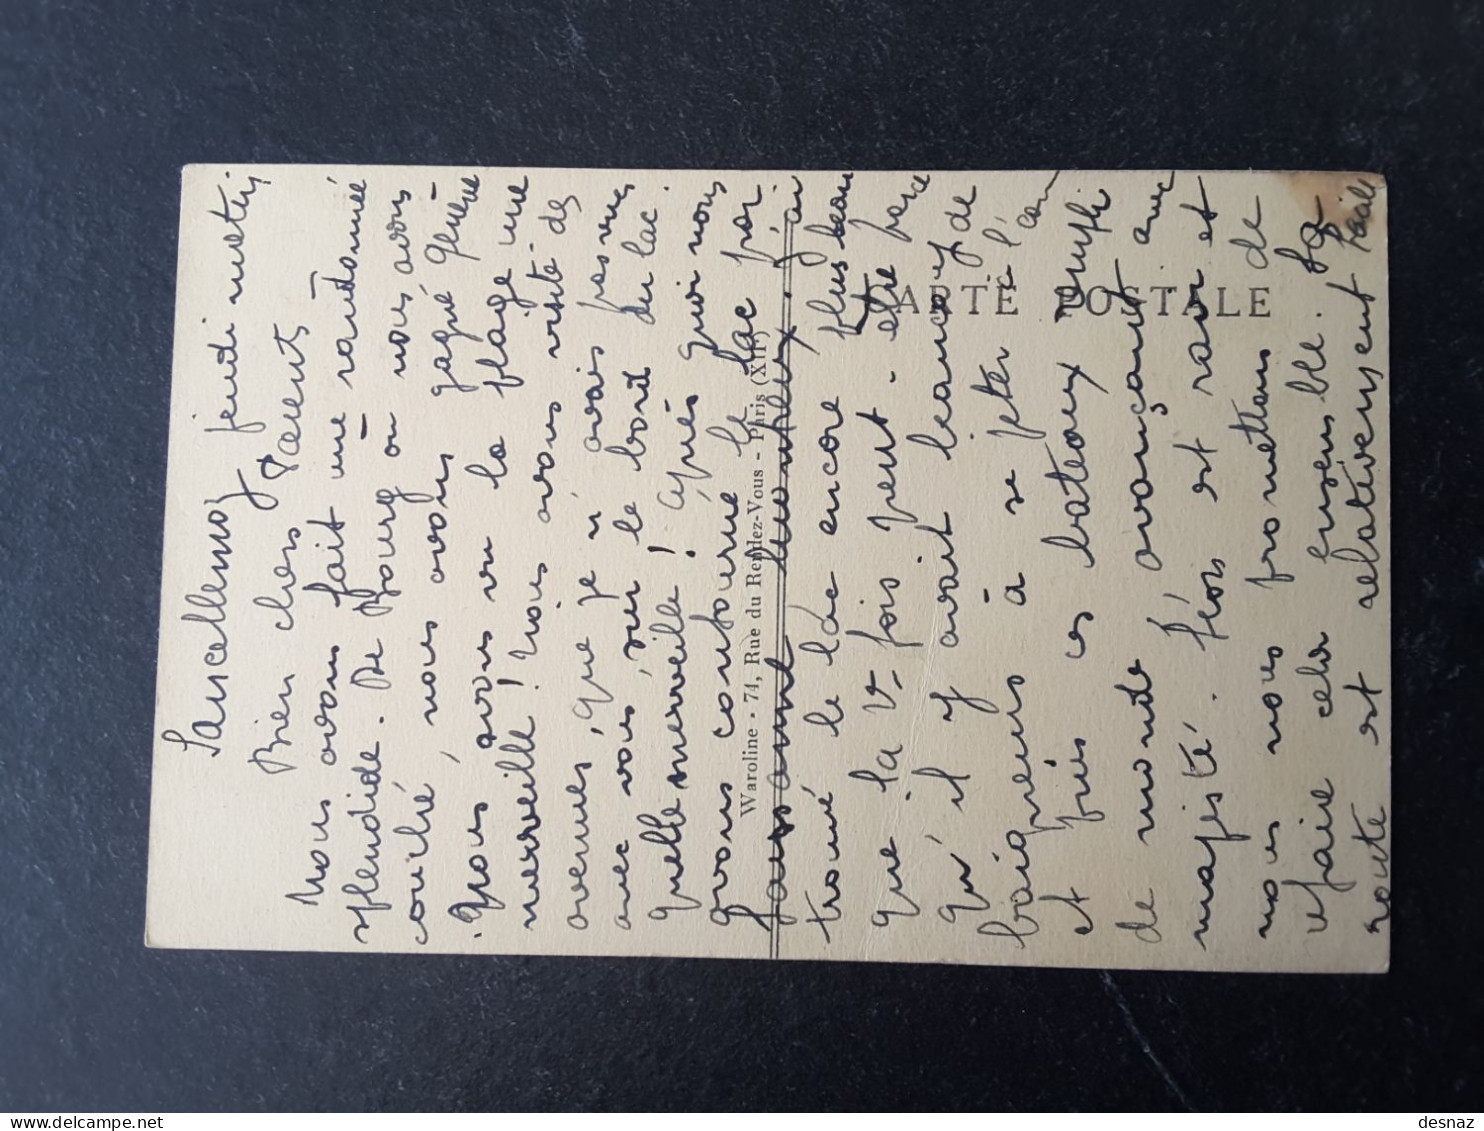 Sancellemoz jeudi matin
Bien chers Parents
Nous avons fait une randonnée
splendide. De Bourg où nous avons
couché, nous avons gagné Genève
Nous avons vu la plage, une
merveille! Nous avons visité des
avenues, que je n'avais pas vues
avec vous, sur le bord du lac.
quelle merveille! Après quoi nous
avons contourné le lac par
j'ai
trouvé le lac encore plus beau
que la 1re fois peut-être parce
qu'il y avait beaucoup de
baigneurs à se jeter à l'eau
et puis ces bateaux remplis
de monde avançant avec
majesté. Féois est ravi et
nous nous promettons de
refaire cela ensemble. La
route est relativement facile
CARTE POSTALE
Waroline - 74, Rue du Rendez-Vous - Paris (XIIe)
desnaz